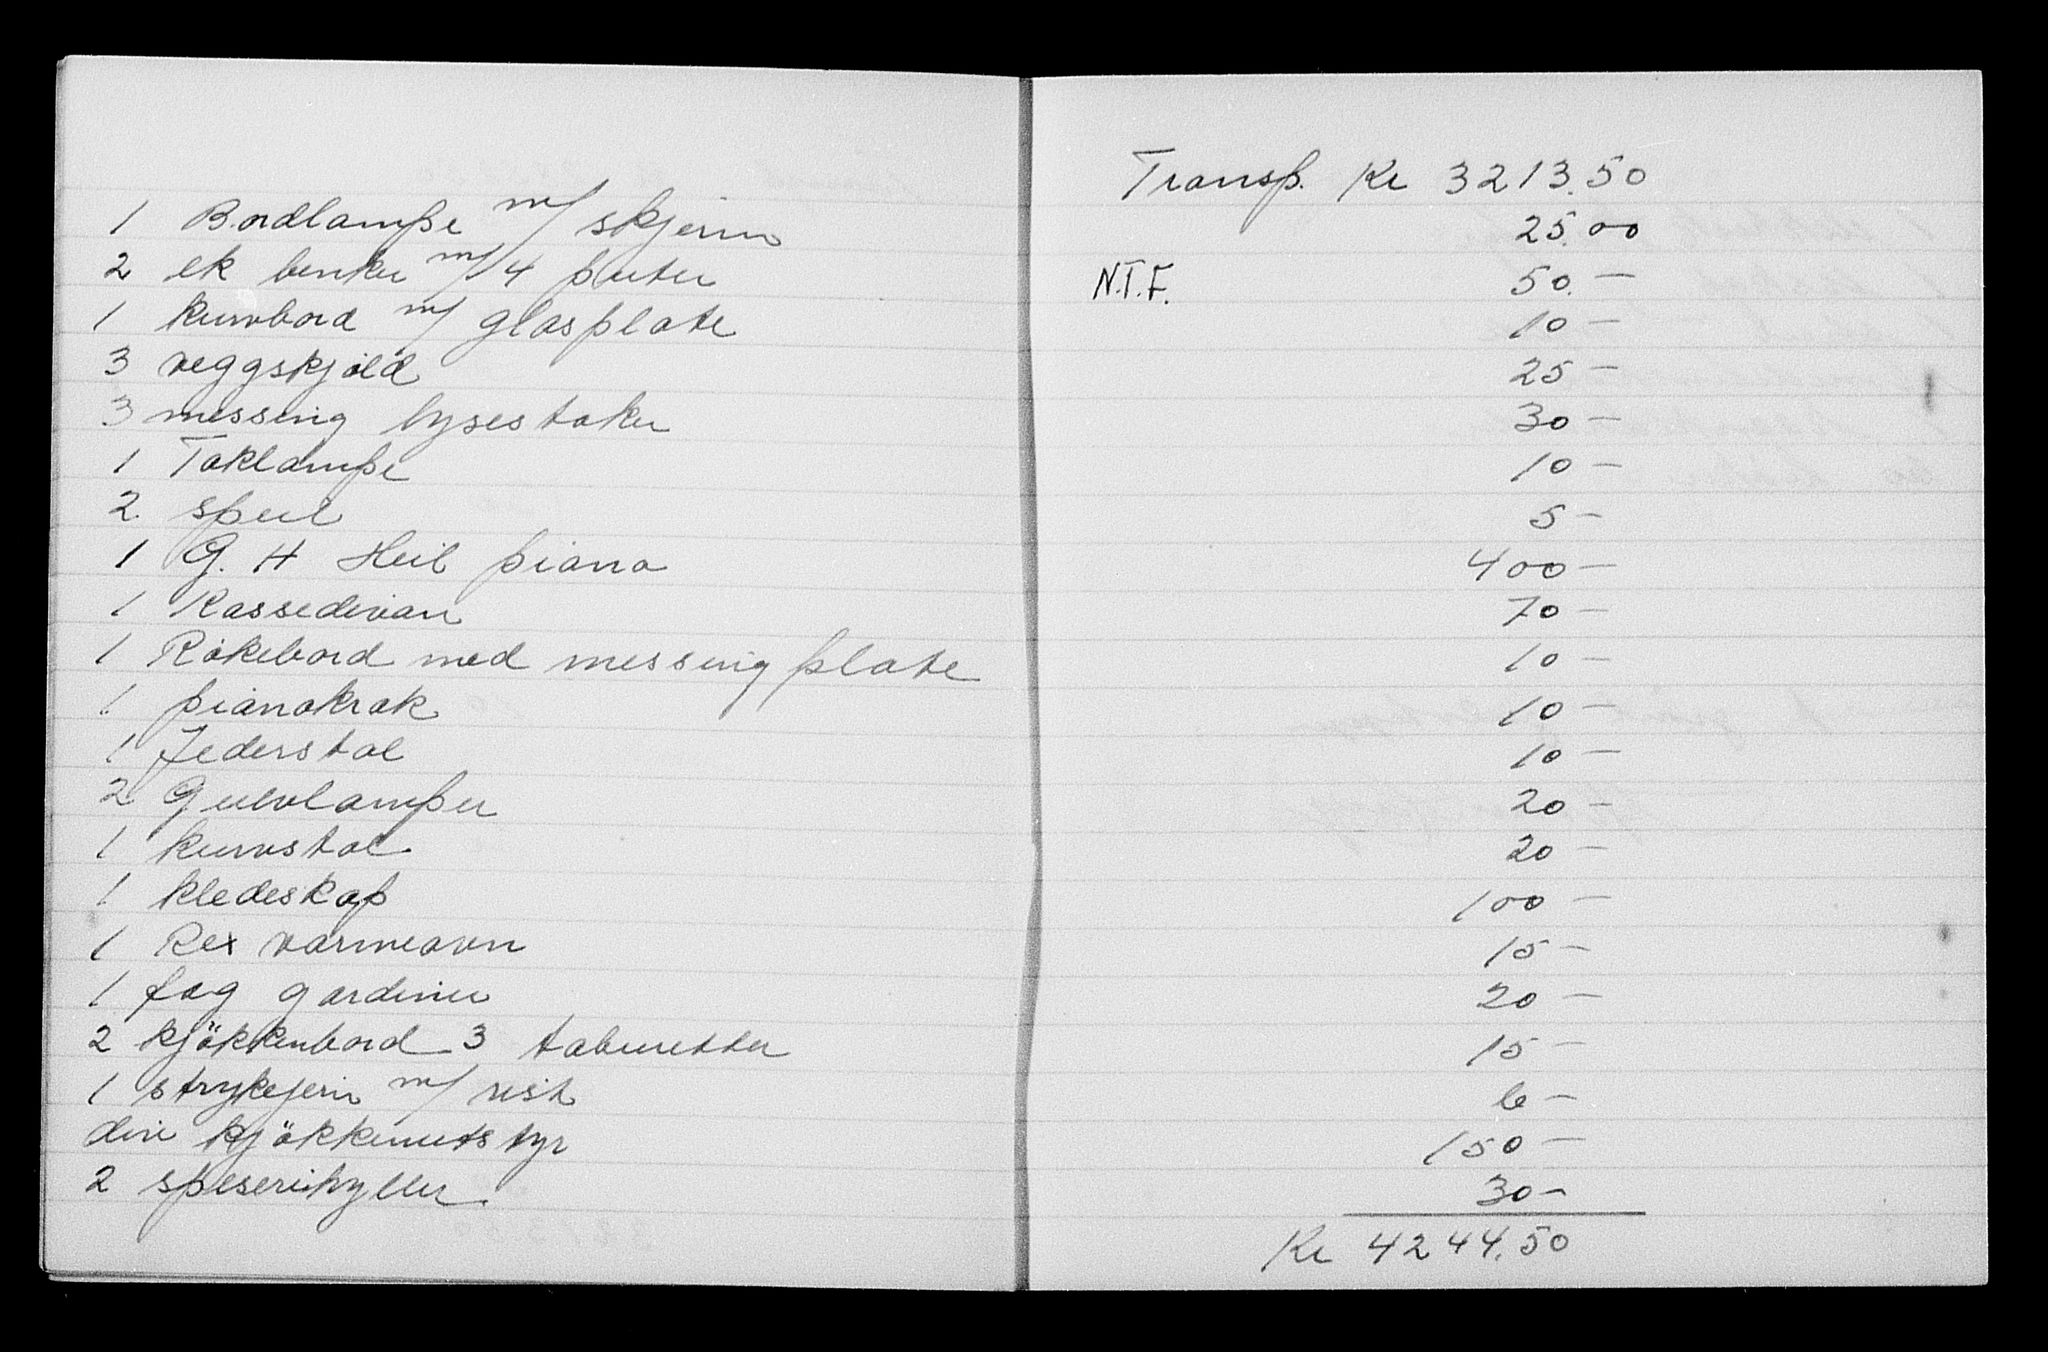 Transp. Kr 3213.50
1 Bordlampe m/ skjerm 25.00
2 ek benker m/ 4 puter N.T.F. 50.—
1 kurvbord m/ glasplate 10 —
3 veggskjold 25 —
3 messing lysestaker 30 —
1 Taklampe 10 —
2 speil 5 —
1 G. H Heil piano 400 —
1 Kassedivan 70 —
1 Rökebord med messing plate 10 —
1 pianokrak 10 —
1 Jederstol 10 —
2 Gulvlamper 20 —
1 kurvstol 20 —
1 kledeskap 100 —
1 Rex varmeovn 15 —
1 fag gardiner 20 —
2 kjökkenbord 3 taburetter 15 —
1 strykejern m/ rist 6 —
div kjökkenutstyr 150 —
2 speserihyller 30 —
Kr 4244.50